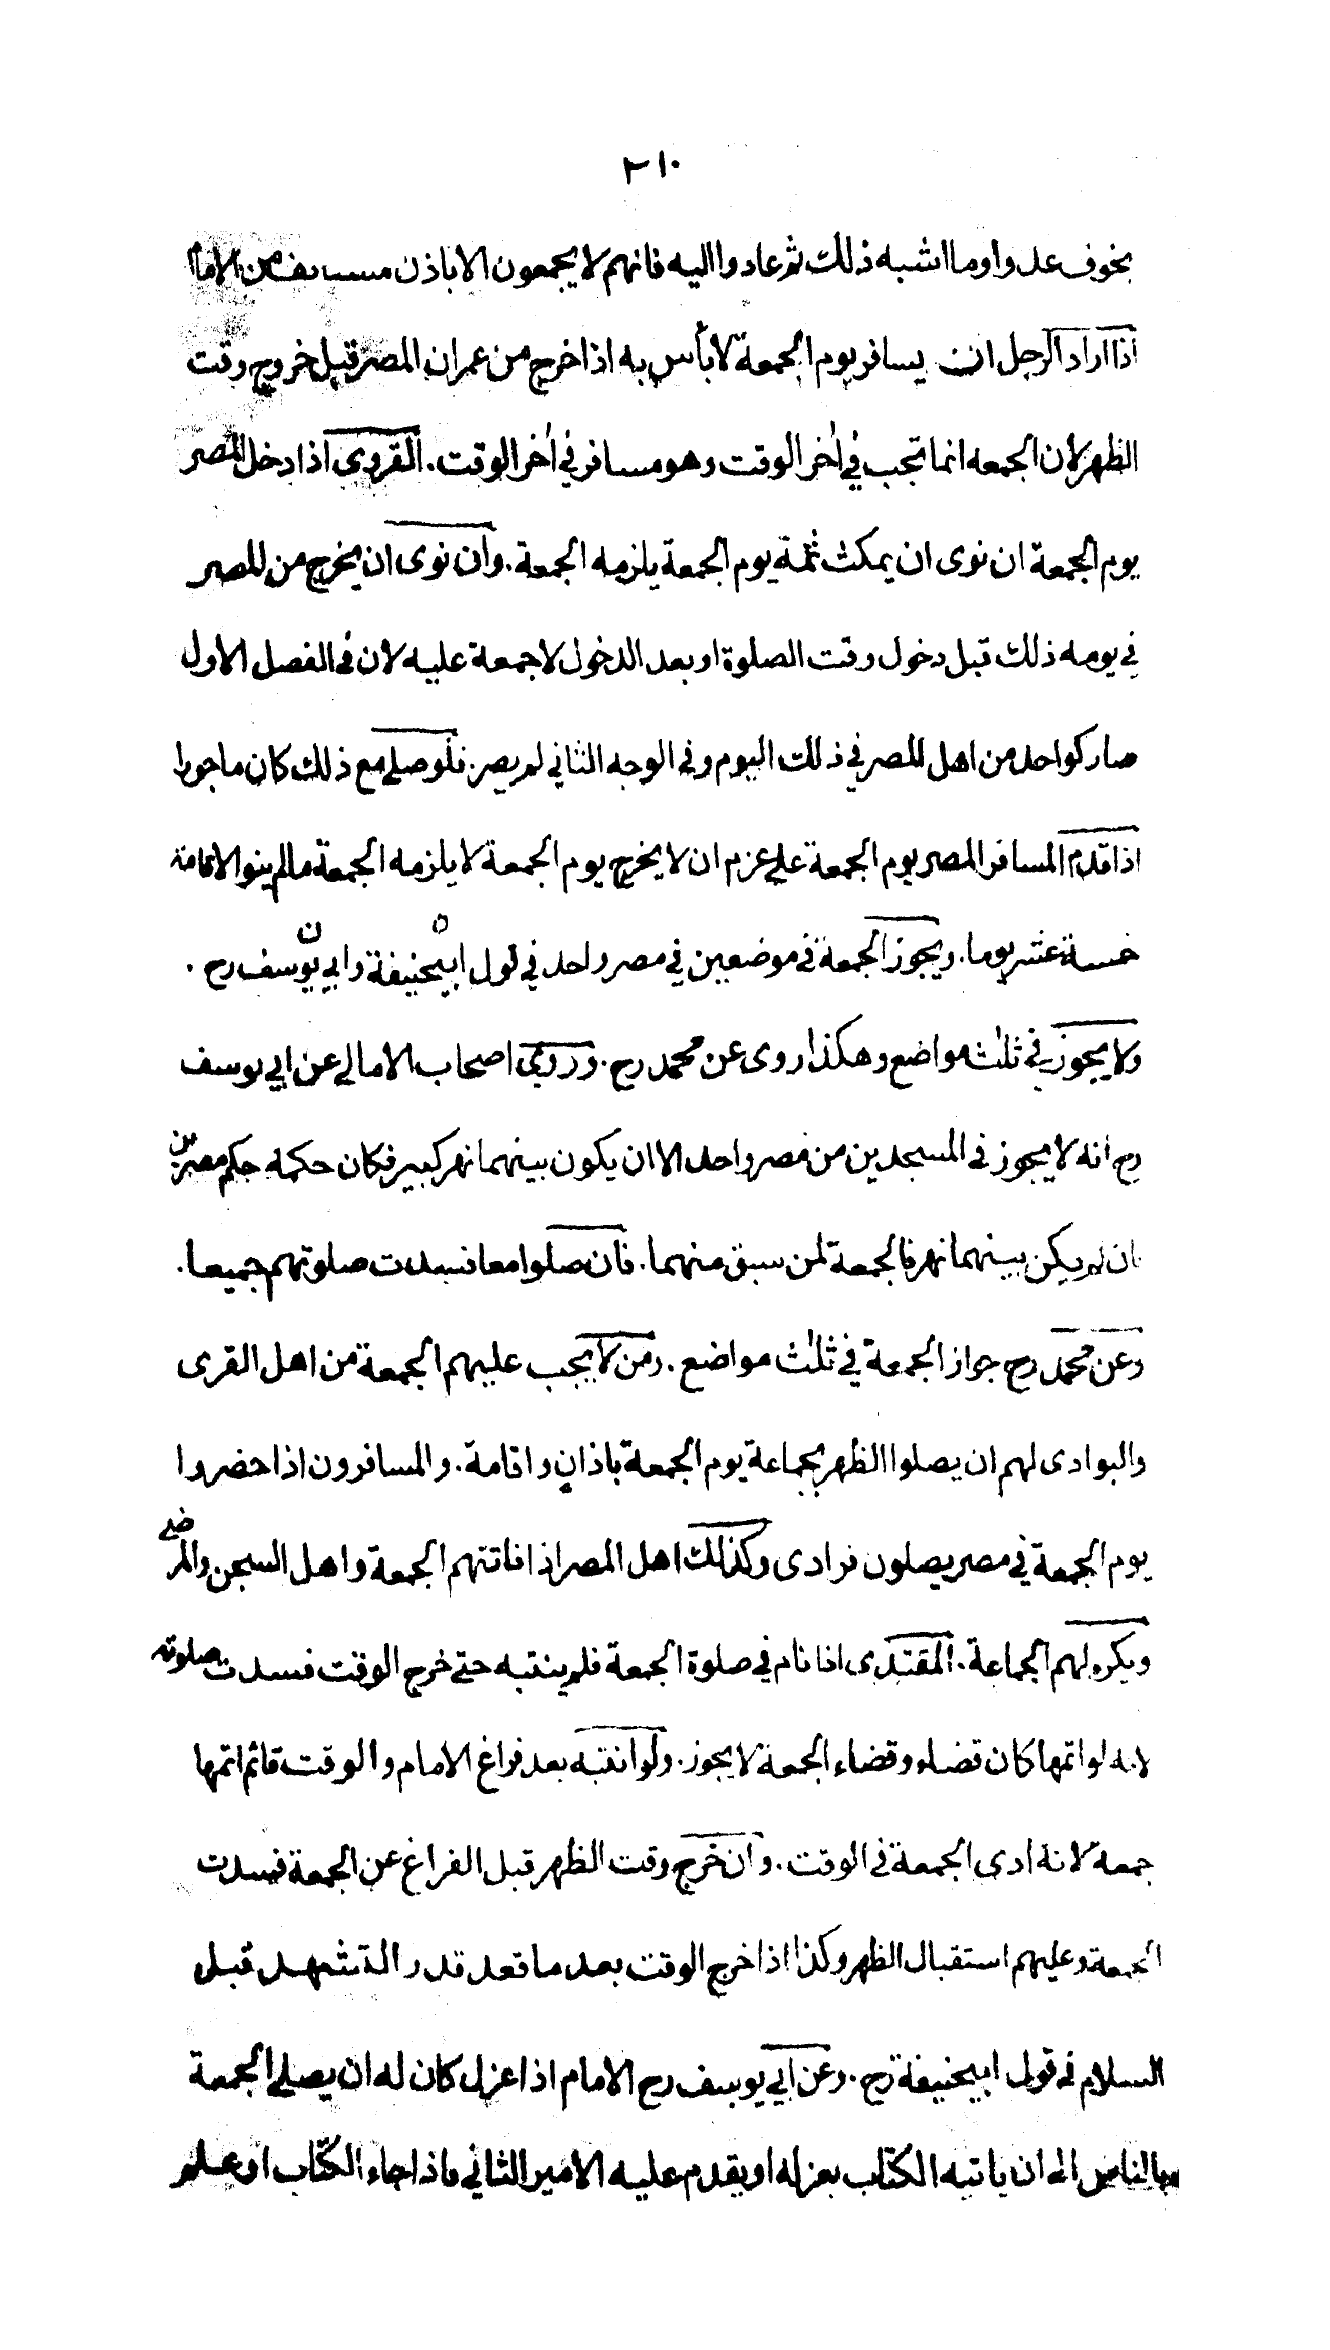 ٢١٠
بخوف عدو او ما اشبه ذلك ثم عادوا اليه فانهم لا يجمعون الا باذن مستانف من الامام
اذا اراد الرجل ان يسافر يوم الجمعة لا بأس به اذا خرج من عمران المصر قبل خروج وقت
الظهر لان الجمعه انما تجب في اٰخر الوقت وهو مسافر في اٰخر الوقت. القروى اذا دخل المصر
يوم الجمعة ان نوى ان يمكث ثمة يوم الجمعة يلزمه الجمعة. وان نوى ان يخرج من المصر
في يومه ذلك قبل دخول وقت الصلوة او بعد الدخول لا جمعة عليه لان في الفصل الاول
صار كواحد من اهل المصر في ذلك اليوم وفي الوجه الثاني لم يصر. فلو صلى مع ذلك كان ماجورا
اذا قدم المسافر المصر يوم الجمعة على عزم ان لا يخرج يوم الجمعة لا يلزمه الجمعة مالم ينو الاقامة
خمسة عشر يوما. ويجوز الجمعة في موضعين في مصر واحد في قول ابيحنيفة وابي يوسف رح.
ولا يجوز في ثلٰث مواضع وهكذا روى عن محمد رح. وروى اصحاب الامالى عن ابي يوسف
رح انه لا يجوز في المسجدين من مصر واحد الا ان يكون بينهما نهر كبير فكان حكمه حكم مصرين
فان لم يكن بينهما نهر فالجمعة لمن سبق منهما. فان صلوا معا فسدت صلوتهم جميعا.
وعن محمد رح جواز الجمعة في ثلٰث مواضع. ومن لا يجب عليهم الجمعة من اهل القرى
والبوادى لهم ان يصلوا الظهر بجماعة يوم الجمعة باذان واقامة. والمسافرون اذا حضروا
يوم الجمعة في مصر يصلون فرادى وكذلك اهل المصر اذا فاتتهم الجمعة واهل السجن والمرضى
ويكره لهم الجماعة. المقتدى اذا نام في صلوة الجمعة فلم ينتبه حتى خرج الوقت فسدت صلوته
لانه لو اتمها كان قضاء وقضاء الجمعة لا يجوز. ولو انتبه بعد فراغ الامام والوقت قائم اتمها
جمعة لانه ادى الجمعة في الوقت. وان خرج وقت الظهر قبل الفراغ عن الجمعة فسدت
الجمعة وعليهم استقبال الظهر وكذا اذا خرج الوقت بعد ما قعد قدر التشهد قبل
السلام في قول ابيحنيفة رح. وعن ابي يوسف رح الامام اذا عزل كان له ان يصلى الجمعة
بالناس الى ان ياتيه الكتاب بعزله او يقدم عليه الامير الثاني فاذا جاء الكتاب او علم